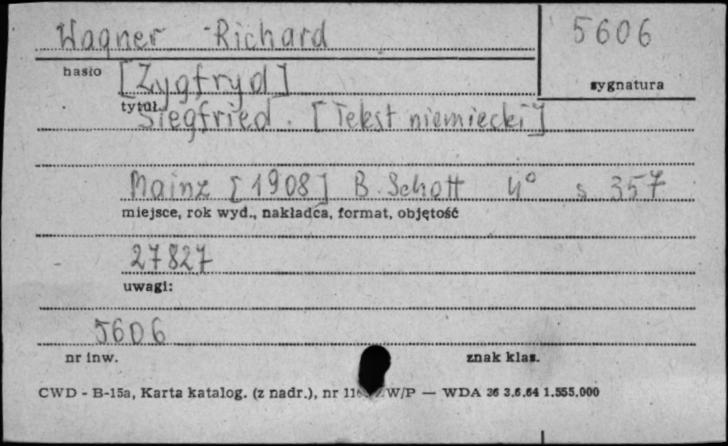 Wagner Richard
5606
hasło
[Zygfryd]
sygnatura
tytuł
Siegfried. [Tekst niemiecki]
Mainz [1908] B. Schott 4° s 357
miejsce, rok wyd., nakładca, format, objętość
27827
uwagi:
5606
nr inw.
znak klas.
CWD - B-15a, Karta katalog. (z nadr.), nr W/P — WDA 36 3.6.64 1.555.000